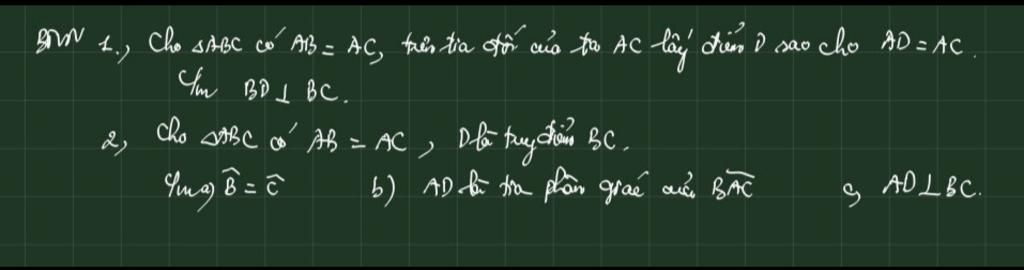 BTVN 1., Cho △ABC có AB = AC, trên tia đối của tia AC lấy điểm D sao cho AD = AC.
C/m BD ⊥ BC.
2, Cho △ABC có AB = AC, D là trung điểm BC.
C/m a) B̂ = Ĉ b) AD là tia phân giác của B̂AC c, AD ⊥ BC.